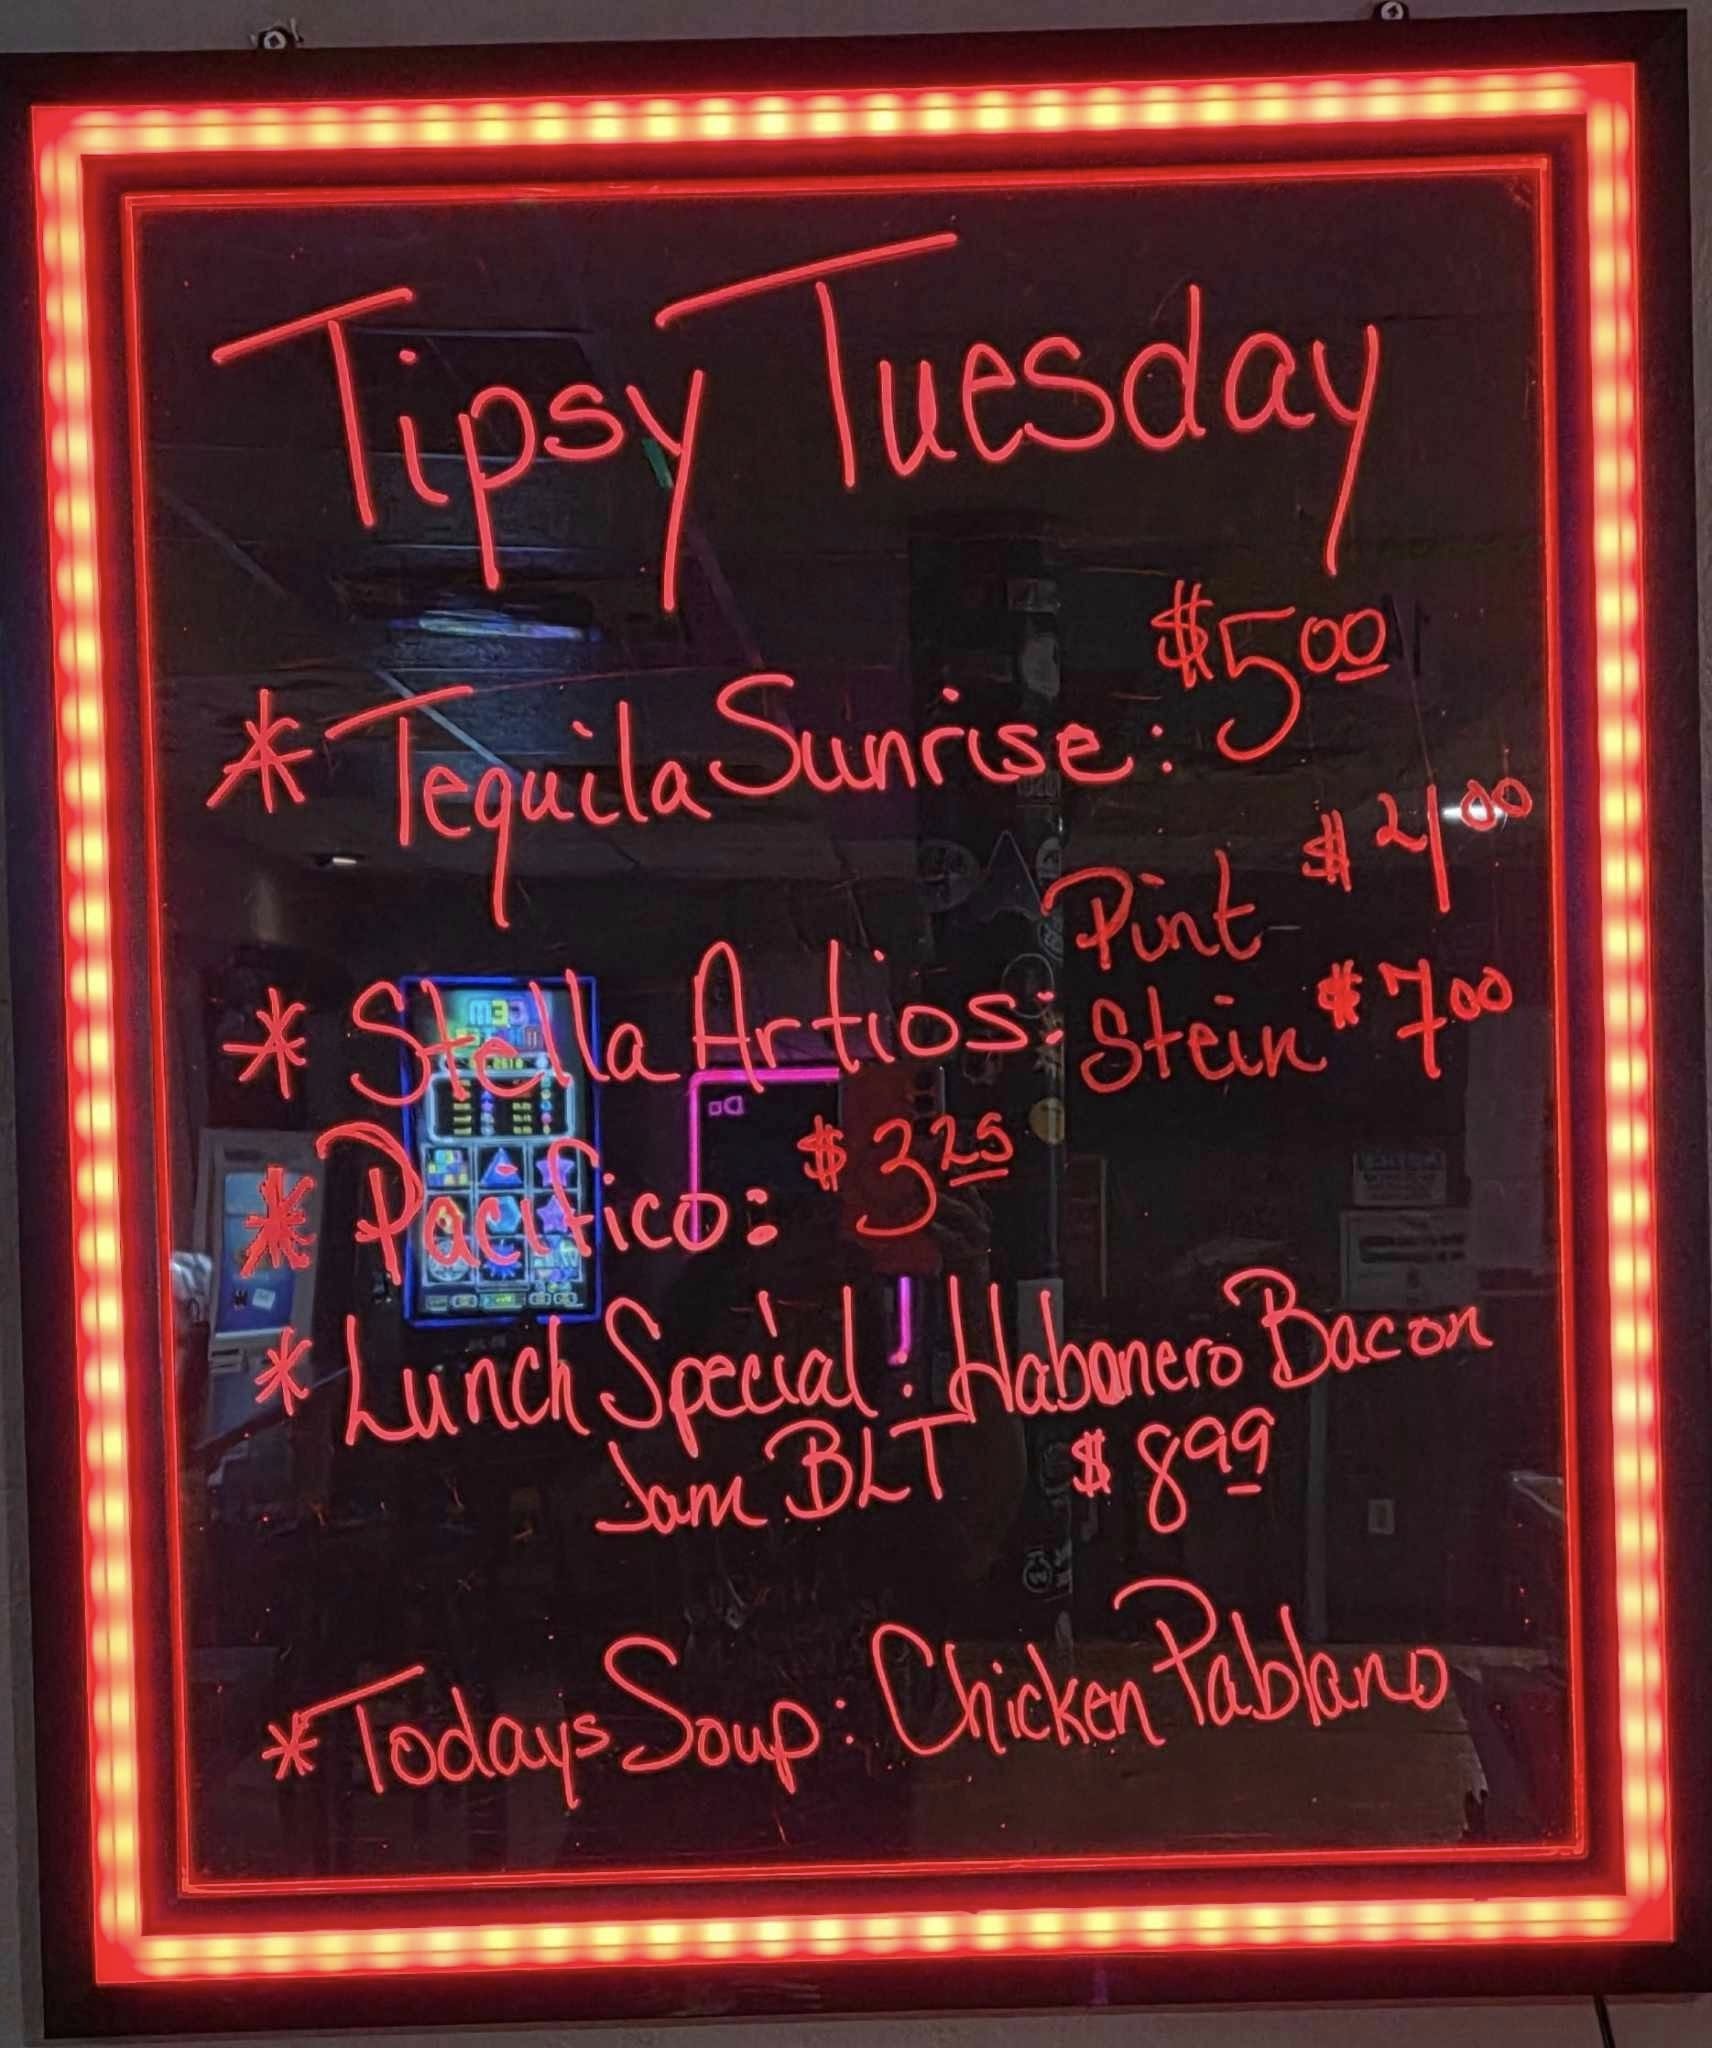 Tipsy Tuesday
* Tequila Sunrise: $5.00
* Stella Artios: Pint $4.00
Stein $7.00
* Pacifico: $3.25
* Lunch Special: Habanero Bacon
Jam BLT $8.99
* Todays Soup: Chicken Pablano